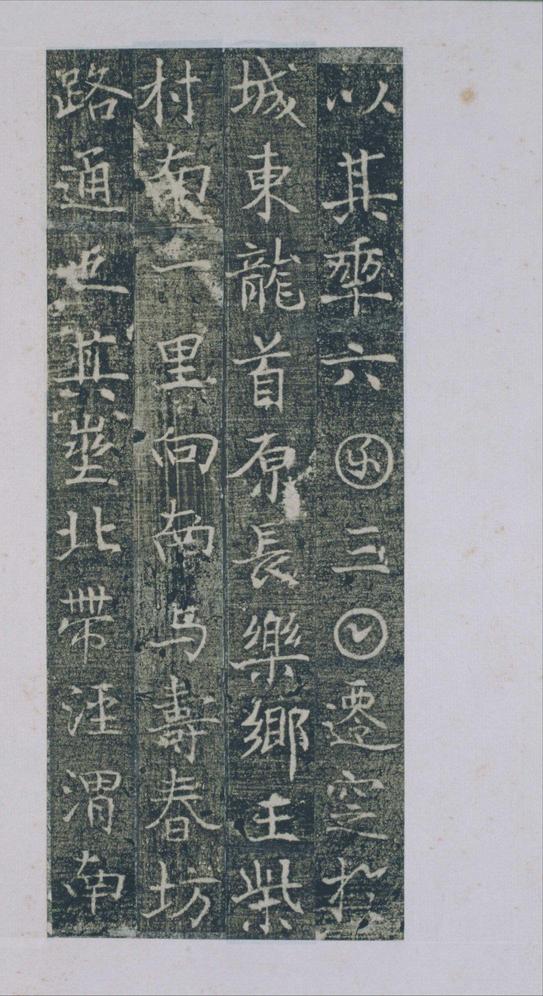 以其𠡦六囝三𡆠遷窆於
城東龍首原長樂鄉王柴
村南一里向南与壽春坊
路通也其埊北帶涇渭南